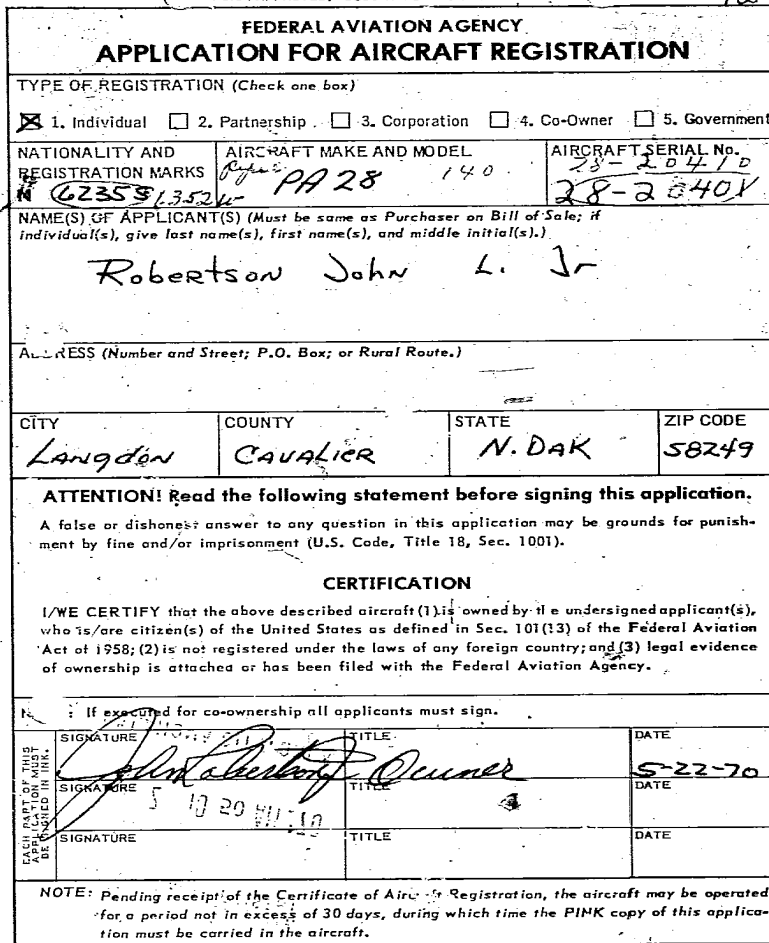 FEDERAL AVIATION AGENCY
APPLICATION FOR AIRCRAFT REGISTRATION
TYPE OF REGISTRATION (Check one box)
☒ 1. Individual ☐ 2. Partnership ☐ 3. Corporation ☐ 4. Co-Owner ☐ 5. Government
NATIONALITY AND REGISTRATION MARKS
N 6235S 6352W
AIRCRAFT MAKE AND MODEL
PA 28 140
AIRCRAFT SERIAL No.
28-20410
NAME(S) OF APPLICANT(S) (Must be same as Purchaser on Bill of Sale; if
individual(s), give last name(s), first name(s), and middle initial(s).)
Robertson John L. Jr
(Number and Street; P.O. Box; or Rural Route.)
CITY
Langdon
COUNTY
CAVALIER
STATE
N. DAK
ZIP CODE
58249
ATTENTION! Read the following statement before signing this application.
A false or dishonest answer to any question in this application may be grounds for punish-
ment by fine and/or imprisonment (U.S. Code, Title 18, Sec. 1001).
CERTIFICATION
I/WE CERTIFY that the above described aircraft (1) is owned by the undersigned applicant(s),
who is/are citizen(s) of the United States as defined in Sec. 101(13) of the Federal Aviation
Act of 1958; (2) is not registered under the laws of any foreign country; and (3) legal evidence
of ownership is attached or has been filed with the Federal Aviation Agency.
: If executed for co-ownership all applicants must sign.
EACH PART OF THIS
APPLICATION MUST
BE SIGNED IN INK.
SIGNATURE
John Robertson Jr
TITLE
Owner
DATE
5-22-70
SIGNATURE
TITLE
DATE
SIGNATURE
TITLE
DATE
NOTE: Pending receipt of the Certificate of Aircraft Registration, the aircraft may be operated
for a period not in excess of 30 days, during which time the PINK copy of this applica-
tion must be carried in the aircraft.